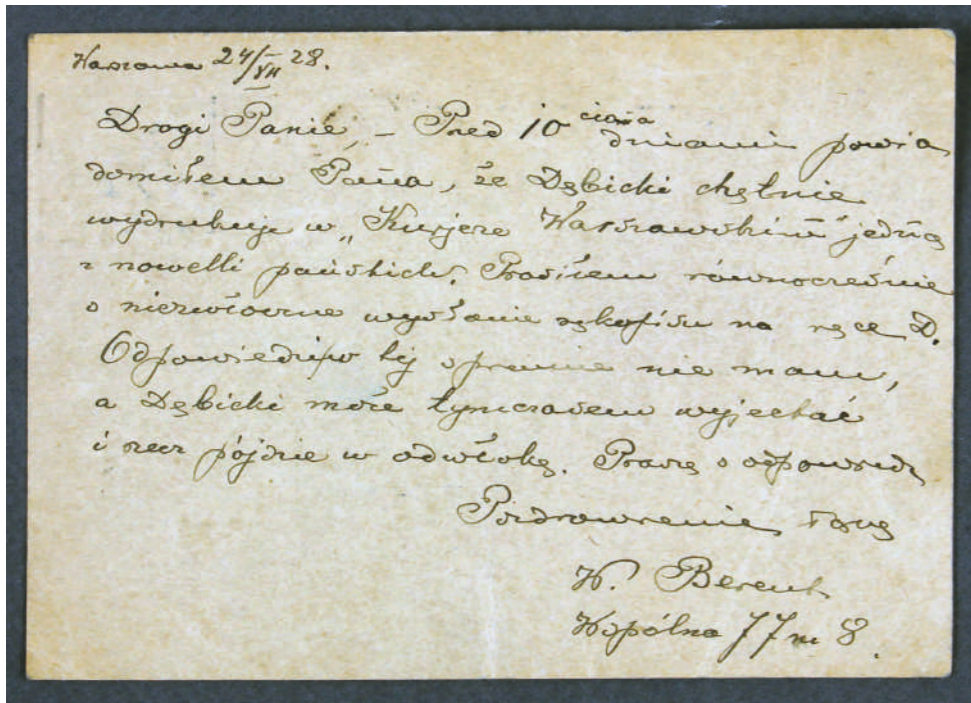 Warszawa 24/VII 28.
Drogi Panie, – Przed 10 cioma dniami powia
domiłem Pana, że Dębicki chętnie
wydrukuje w „Kurjerze Warszawskim" jedną
z nowelli pańskich. Prosiłem równocześnie
o niezwłoczne wysłanie rękopisu na ręce D.
Odpowiedzi w tej sprawie nie mam,
a Dębicki może tymczasem wyjechać
i rzecz pójdzie w odwłokę. Proszę o odpowiedź
Pozdrowienie łączę
W. Berent
Wspólna 77 m 8.